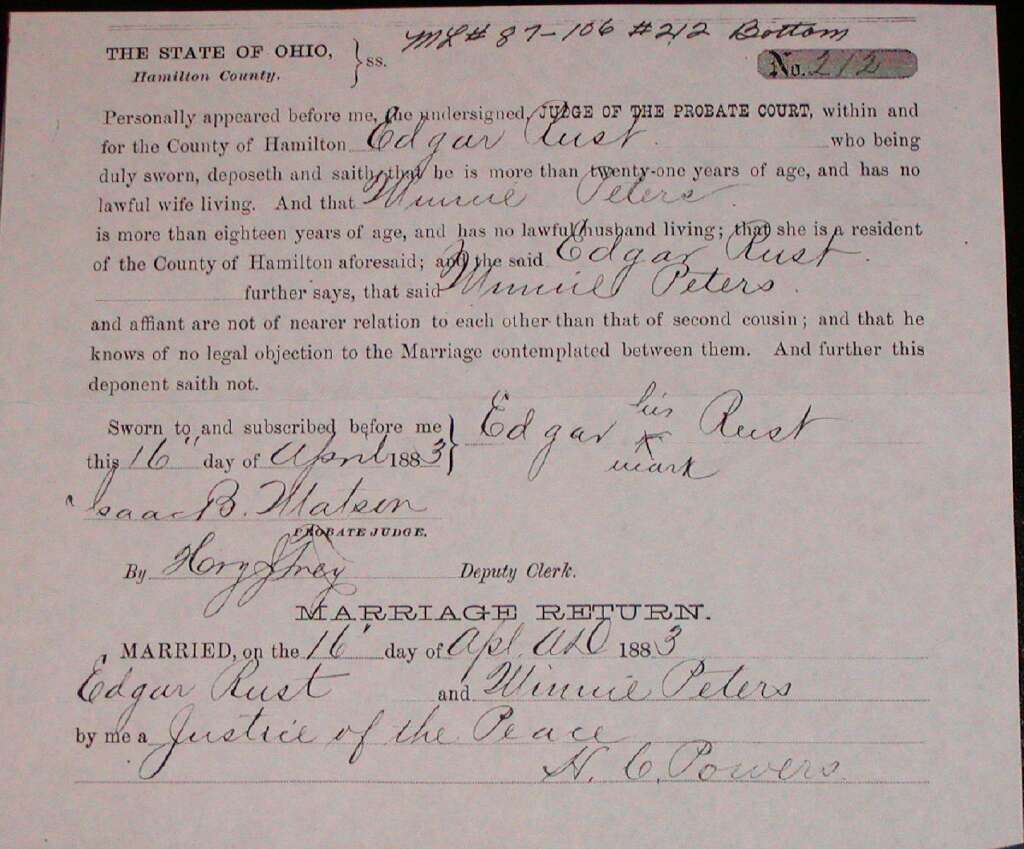 ML# 87-106 #212 Bottom
THE STATE OF OHIO, } ss.
Hamilton County.
No. 212
Personally appeared before me, the undersigned, JUDGE OF THE PROBATE COURT, within and
for the County of Hamilton Edgar Rust who being
duly sworn, deposeth and saith, that he is more than twenty-one years of age, and has no
lawful wife living. And that Minnie Peters
is more than eighteen years of age, and has no lawful husband living; that she is a resident
of the County of Hamilton aforesaid; and the said Edgar Rust.
further says, that said Minnie Peters.
and affiant are not of nearer relation to each other than that of second cousin; and that he
knows of no legal objection to the Marriage contemplated between them. And further this
deponent saith not.
Sworn to and subscribed before me } Edgar his X mark Rust
this 16" day of April 1883
Isaac B. Matson
PROBATE JUDGE.
By Deputy Clerk.
MARRIAGE RETURN.
MARRIED, on the 16" day of Apl. AD 1883
Edgar Rust and Minnie Peters
by me a Justice of the Peace
H. C. Powers